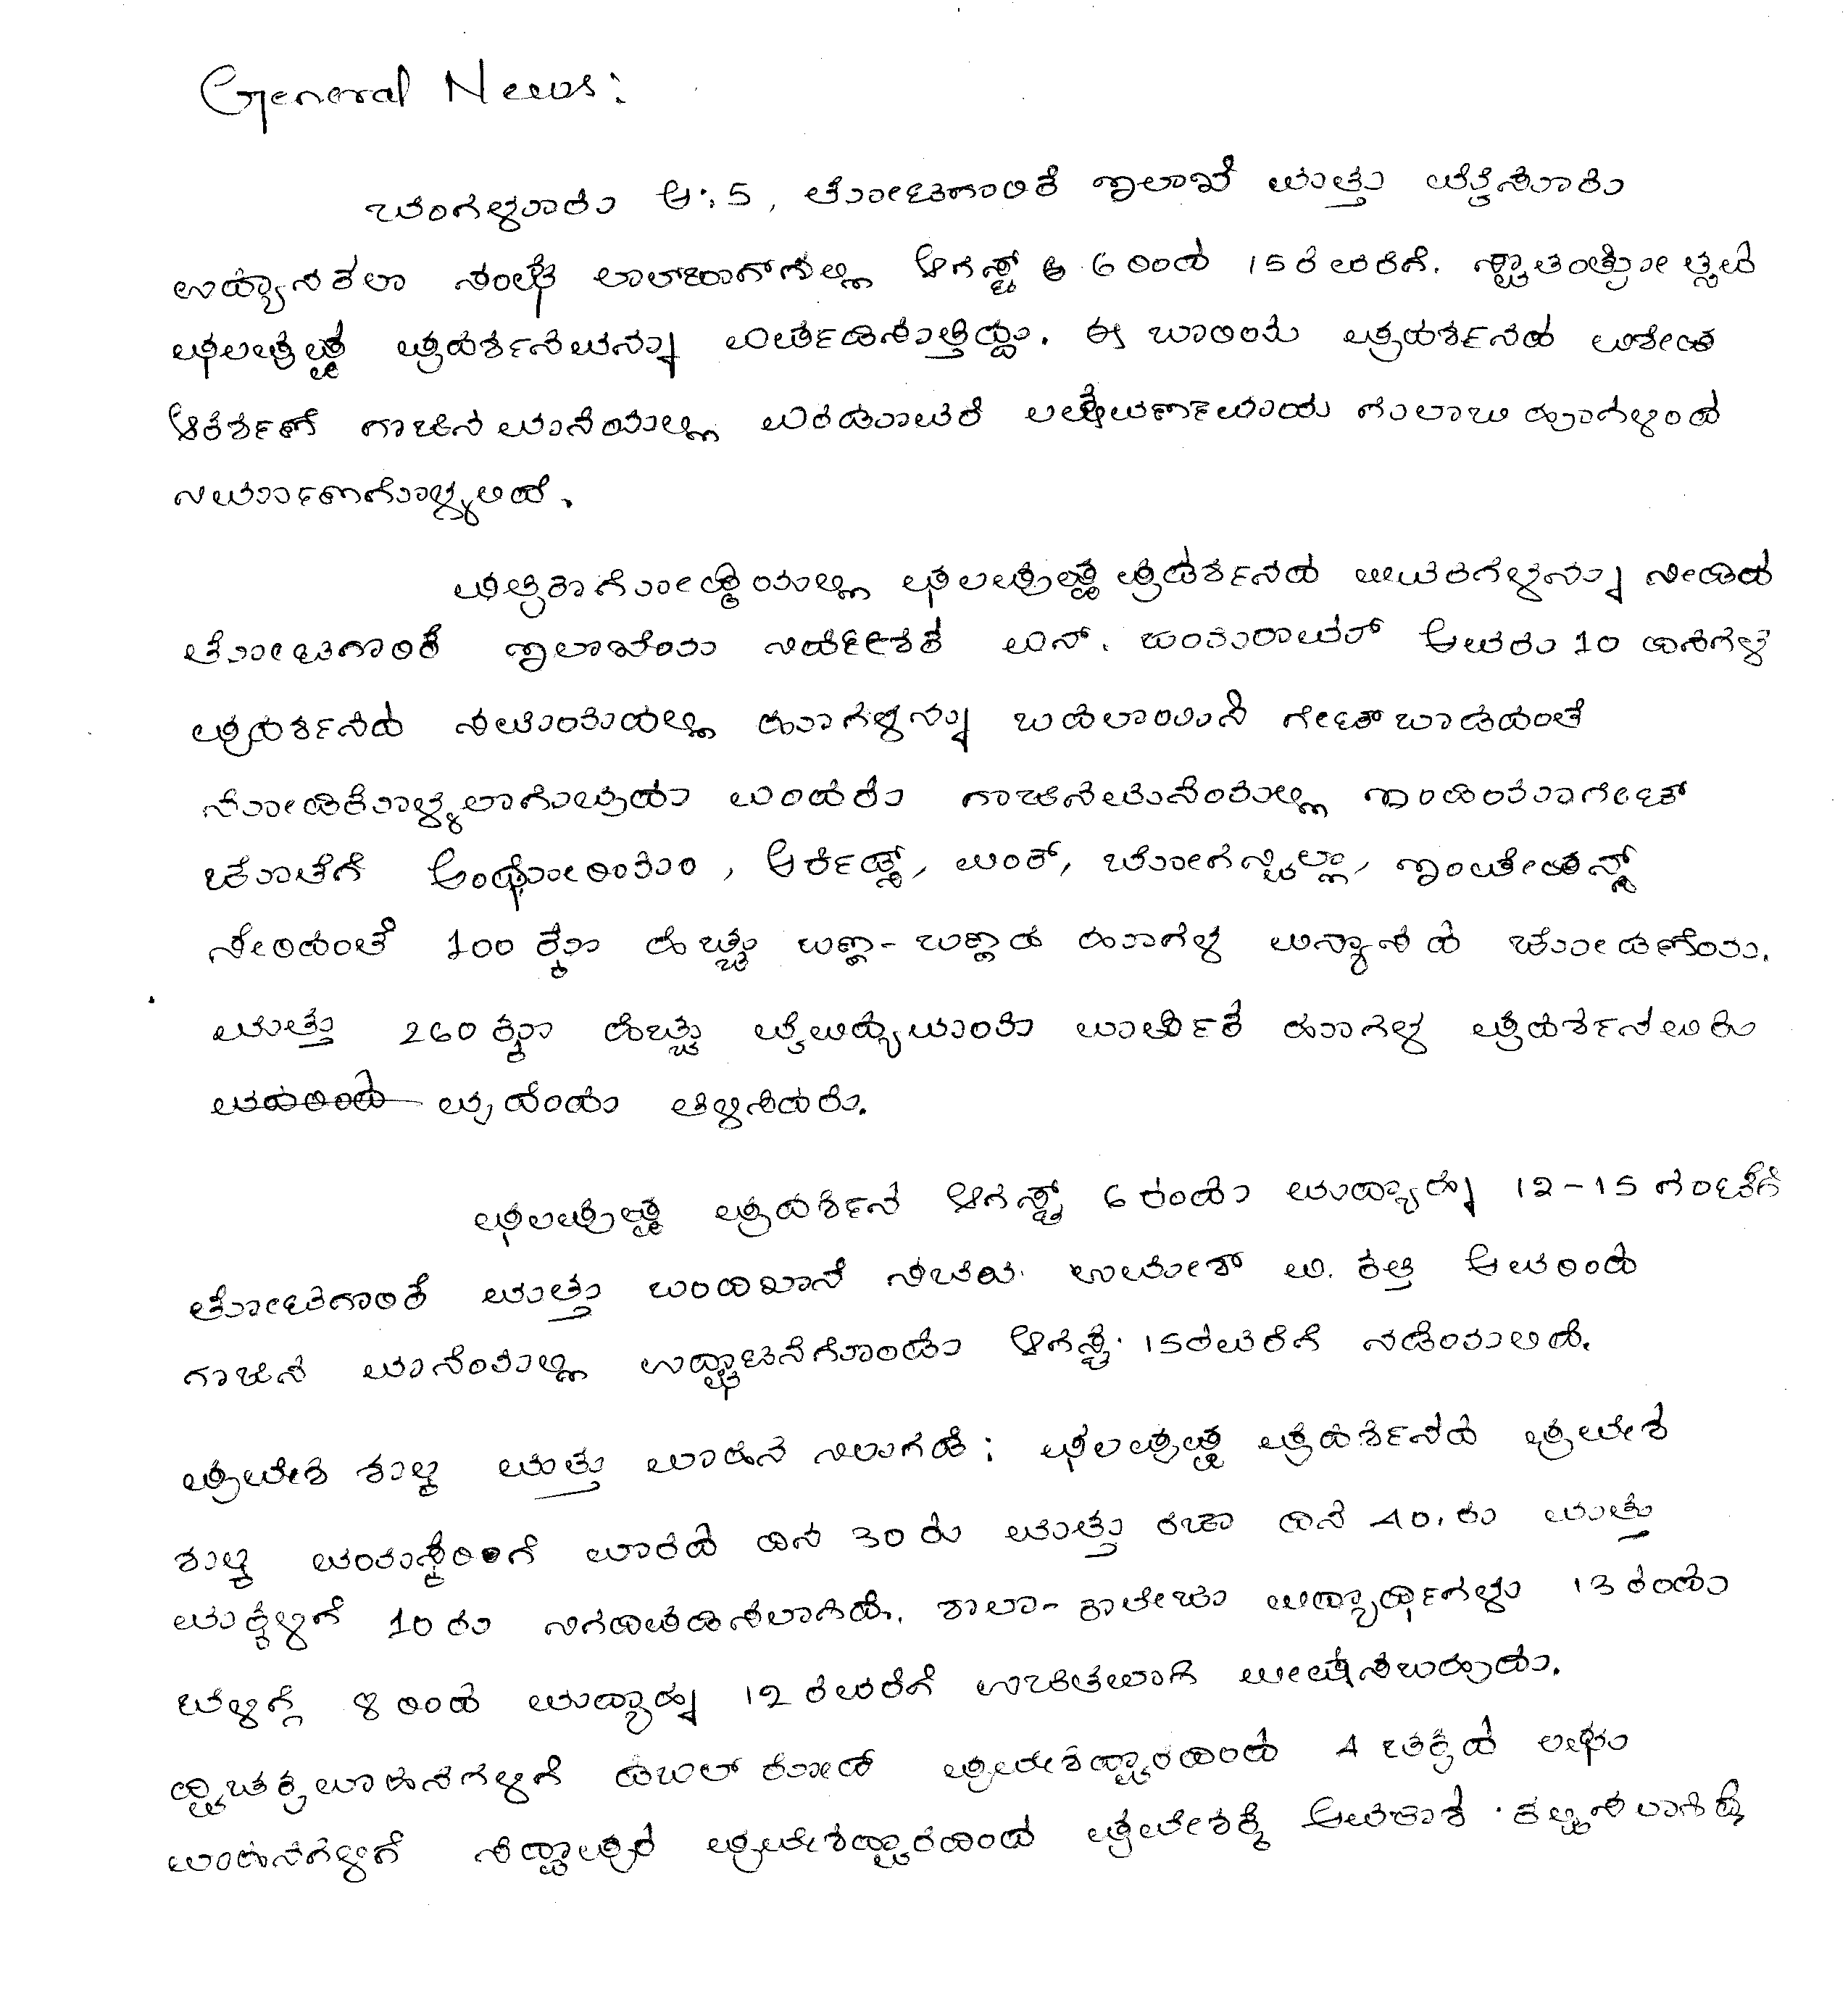 General News:
ಬೆಂಗಳೂರು ಆ:5, ತೋಟಗಾರಿಕೆ ಇಲಾಖೆ ಮತ್ತು ಮೈಸೂರು
ಉದ್ಯಾನಕಲಾ ಸಂಘ ಲಾಲ್‌ಬಾಗ್‌ನಲ್ಲಿ ಆಗಸ್ಟ್ 6 ರಿಂದ 15ರವರೆಗೆ. ಸ್ವಾತಂತ್ರ್ಯೋತ್ಸವ
ಫಲಪುಷ್ಪ ಪ್ರದರ್ಶನವನ್ನು ಏರ್ಪಡಿಸುತ್ತಿದ್ದು. ಈ ಬಾರಿಯ ಪ್ರದರ್ಶನದ ವಿಶೇಷ
ಆಕರ್ಷಣೆ ಗಾಜಿನ ಮನೆಯಲ್ಲಿ ಗುಲಾಬಿ ಹೂಗಳಿಂದ
ನಿರ್ಮಾಣಗೊಳ್ಳಲಿದೆ.
ಪತ್ರಿಕಾಗೋಷ್ಠಿಯಲ್ಲಿ ಫಲಪುಷ್ಪ ಪ್ರದರ್ಶನದ ವಿವರಗಳನ್ನು ನೀಡಿದ
ತೋಟಗಾರಿಕೆ ಇಲಾಖೆಯ ನಿರ್ದೇಶಕ ಎನ್. ಜಯರಾಮ್ ಅವರು 10 ದಿನಗಳ
ಪ್ರದರ್ಶನದ ಸಮಯದಲ್ಲಿ ಹೂಗಳನ್ನು ಬದಲಾಯಿಸಿ ಗೇಟ್ ಬಾಡದಂತೆ
ನೋಡಿಕೊಳ್ಳಲಾಗುವುದು ಎಂದರು ಗಾಜಿನಮನೆಯಲ್ಲಿ ಇಂಡಿಯಾಗೇಟ್
ಜೊತೆಗೆ ಆಂಥೋರಿಯಂ, ಆರ್ಕಿಡ್ಸ್, ಪಿಂಕ್, ಬೋಗನ್ವಿಲ್ಲಾ, ಇಂಪೇಷನ್ಸ್
ಸೇರಿದಂತೆ 100 ಕ್ಕೂ ಹೆಚ್ಚು ಬಣ್ಣ-ಬಣ್ಣದ ಹೂಗಳ ವಿನ್ಯಾಸದ ಜೋಡಣೆಯು.
ಮತ್ತು 260ಕ್ಕೂ ಹೆಚ್ಚು ವೈವಿಧ್ಯಮಯ ವಾರ್ಷಿಕ ಹೂಗಳ ಪ್ರದರ್ಶನವಿರು
ವುದೆಂದು ತಿಳಿಸಿದರು.
ಫಲಪುಷ್ಪ ಪ್ರದರ್ಶನ ಆಗಸ್ಟ್ 6ರಂದು ಮಧ್ಯಾಹ್ನ 12-15 ಗಂಟೆಗೆ
ತೋಟಗಾರಿಕೆ ಮತ್ತು ಬಂದಿಖಾನೆ ಸಚಿವ ಉಮೇಶ್ ವಿ. ಕತ್ತಿ ಅವರಿಂದ
ಗಾಜಿನ ಮನೆಯಲ್ಲಿ ಉದ್ಘಾಟನೆಗೊಂಡು ಆಗಸ್ಟ್ 15ರವರೆಗೆ ನಡೆಯಲಿದೆ.
ಪ್ರವೇಶ ಶುಲ್ಕ ಮತ್ತು ವಾಹನ ನಿಲುಗಡೆ: ಫಲಪುಷ್ಪ ಪ್ರದರ್ಶನದ ಪ್ರವೇಶ
ಶುಲ್ಕ ವಯಸ್ಕರಿಗೆ ವಾರದ ದಿನ 30ರು ಮತ್ತು ರಜಾ ದಿನ 40.ರು ಮತ್ತು
ಮಕ್ಕಳಿಗೆ 10 ರು ನಿಗದಿಪಡಿಸಲಾಗಿದೆ. ಶಾಲಾ-ಕಾಲೇಜು ವಿದ್ಯಾರ್ಥಿಗಳು 13ರಂದು
ಬೆಳಿಗ್ಗೆ 8 ರಿಂದ ಮಧ್ಯಾಹ್ನ 12 ರವರೆಗೆ ಉಚಿತವಾಗಿ ವೀಕ್ಷಿಸಬಹುದು.
ದ್ವಿಚಕ್ರವಾಹನಗಳಿಗೆ ಡಬಲ್ ರೋಡ್ ಪ್ರವೇಶದ್ವಾರದಿಂದ 4 ಚಕ್ರದ ಲಘು
ವಾಹನಗಳಿಗೆ ಸಿದ್ದಾಪುರ ಪ್ರವೇಶದ್ವಾರದಿಂದ ಪ್ರವೇಶಕ್ಕೆ ಅವಕಾಶ ಕಲ್ಪಿಸಲಾಗಿದೆ